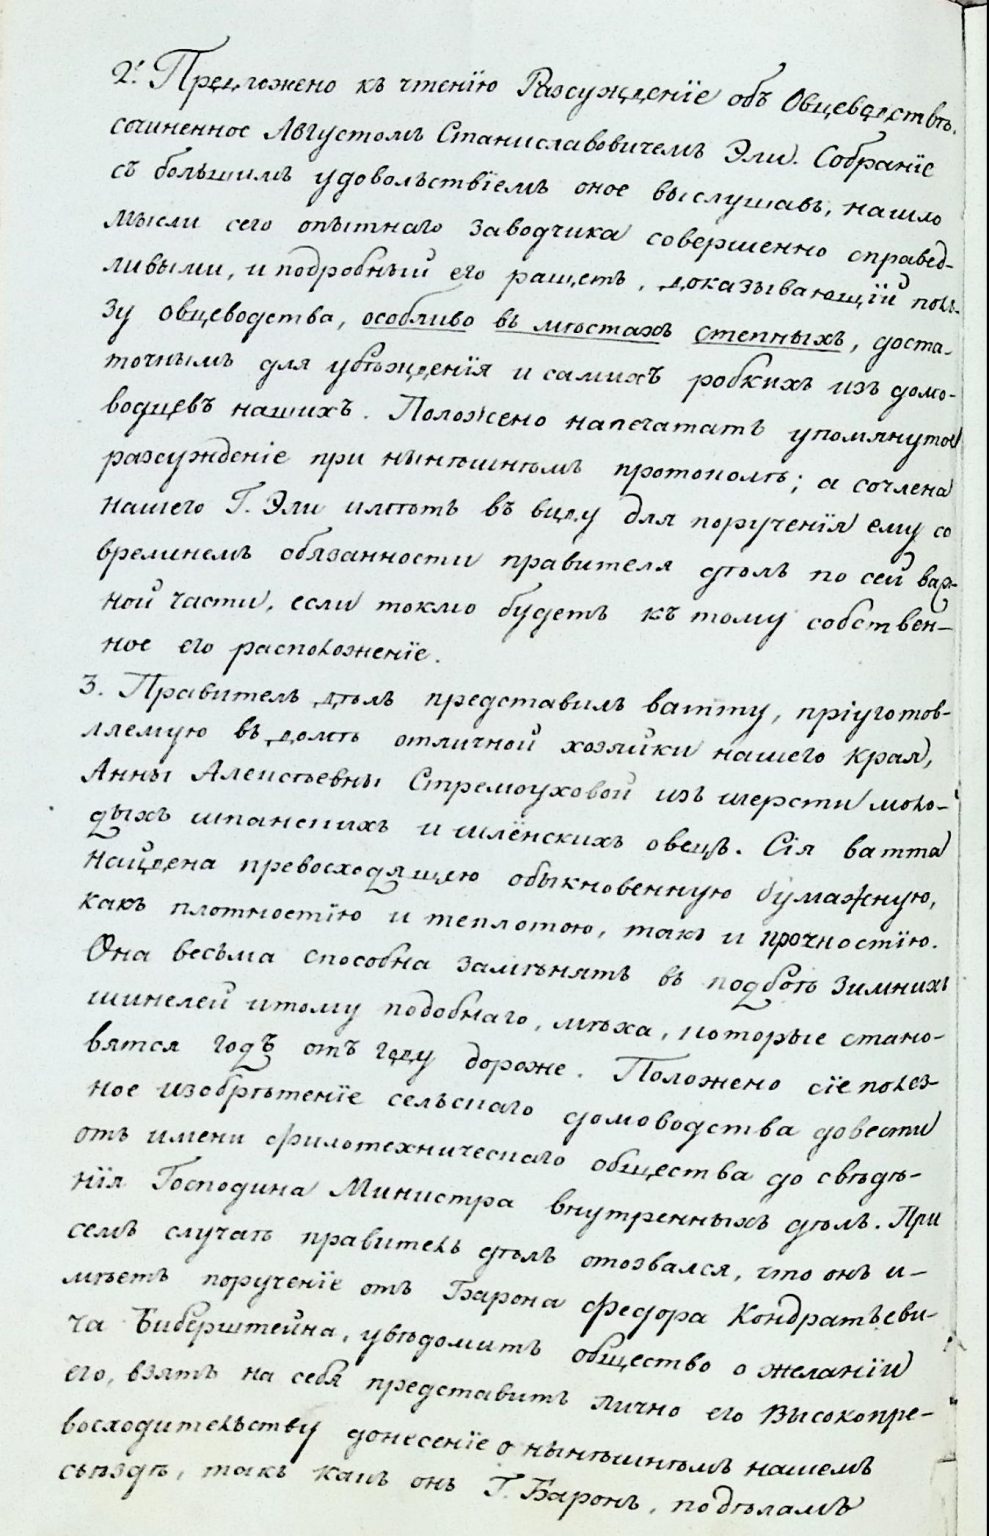 2. Предложено къ чтенїю Разсужденїе объ Овцеводствѣ,
сочиненное Августомъ Станиславовичемъ Эли. Собранїе
съ большимъ удовольствїемъ оное выслушавъ, нашло
мысли сего опытнаго заводчика совершенно справед-
ливыми, и подробный его ращетъ, доказывающїй поль-
зу овцеводства, особливо въ мѣстахъ степныхъ, доста-
точнымъ для убѣжденїя и самихъ робкихъ изъ домо-
водцевъ нашихъ. Положено напечатать упомянутое
разсужденіе при нынѣшнѣмъ протоколѣ; а сочлена
нашего Г. Эли имѣть въ виду для порученїя ему со
времинемъ обязанности правителя дѣлъ по сей важ-
ной части, если токмо будетъ къ тому собствен-
ное его расположенїе.
3. Правитель дѣлъ представилъ ватту, прїуготов-
ляемую въ домѣ отличной хозяйки нашего края,
Анны Алексѣевны Стремоуховой изъ шерсти моло-
дыхъ шпанскихъ и шлёнскихъ овецъ. Сїя ватта
найдена превосходящею обыкновенную бумажную,
какъ плотностїю и теплотою, такъ и прочностїю.
Она весьма способна замѣнять въ подбоѣ зимнихъ
шинелей и тому подобнаго, мѣха, которые стано-
вятся годъ отъ году дороже. Положено сїе полез-
ное изобрѣтенїе сельскаго домоводства довести
отъ имени филотехническаго общества до свѣдѣ-
нїя Господина Министра внутренныхъ дѣлъ. При
семъ случаѣ правитель дѣлъ отозвался, что онъ и-
мѣетъ порученїе отъ Барона Федора Кондратьеви-
ча Биберштейна, увѣдомить общество о желанїи
его, взять на себя представить лично его Высокопре-
восходительству донесенїе о нынѣшнѣмъ нашемъ
съѣздѣ, такъ какъ онъ Г. Баронъ, по дѣламъ